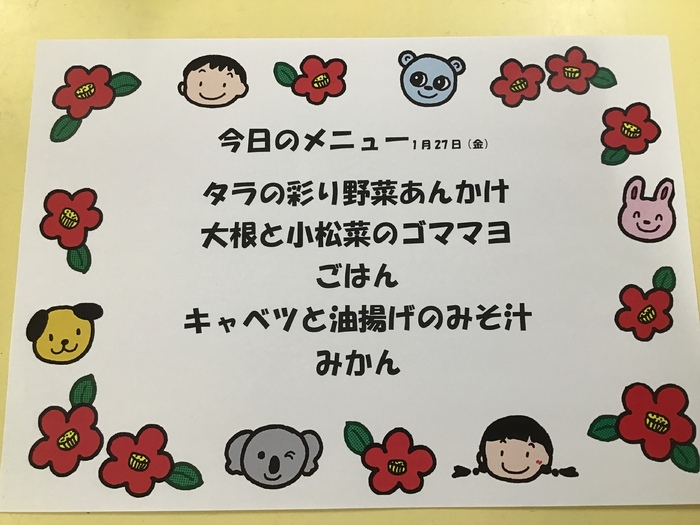 今日のメニュー1月27日(金)
タラの彩り野菜あんかけ
大根と小松菜のゴママヨ
ごはん
キャベツと油揚げのみそ汁
みかん